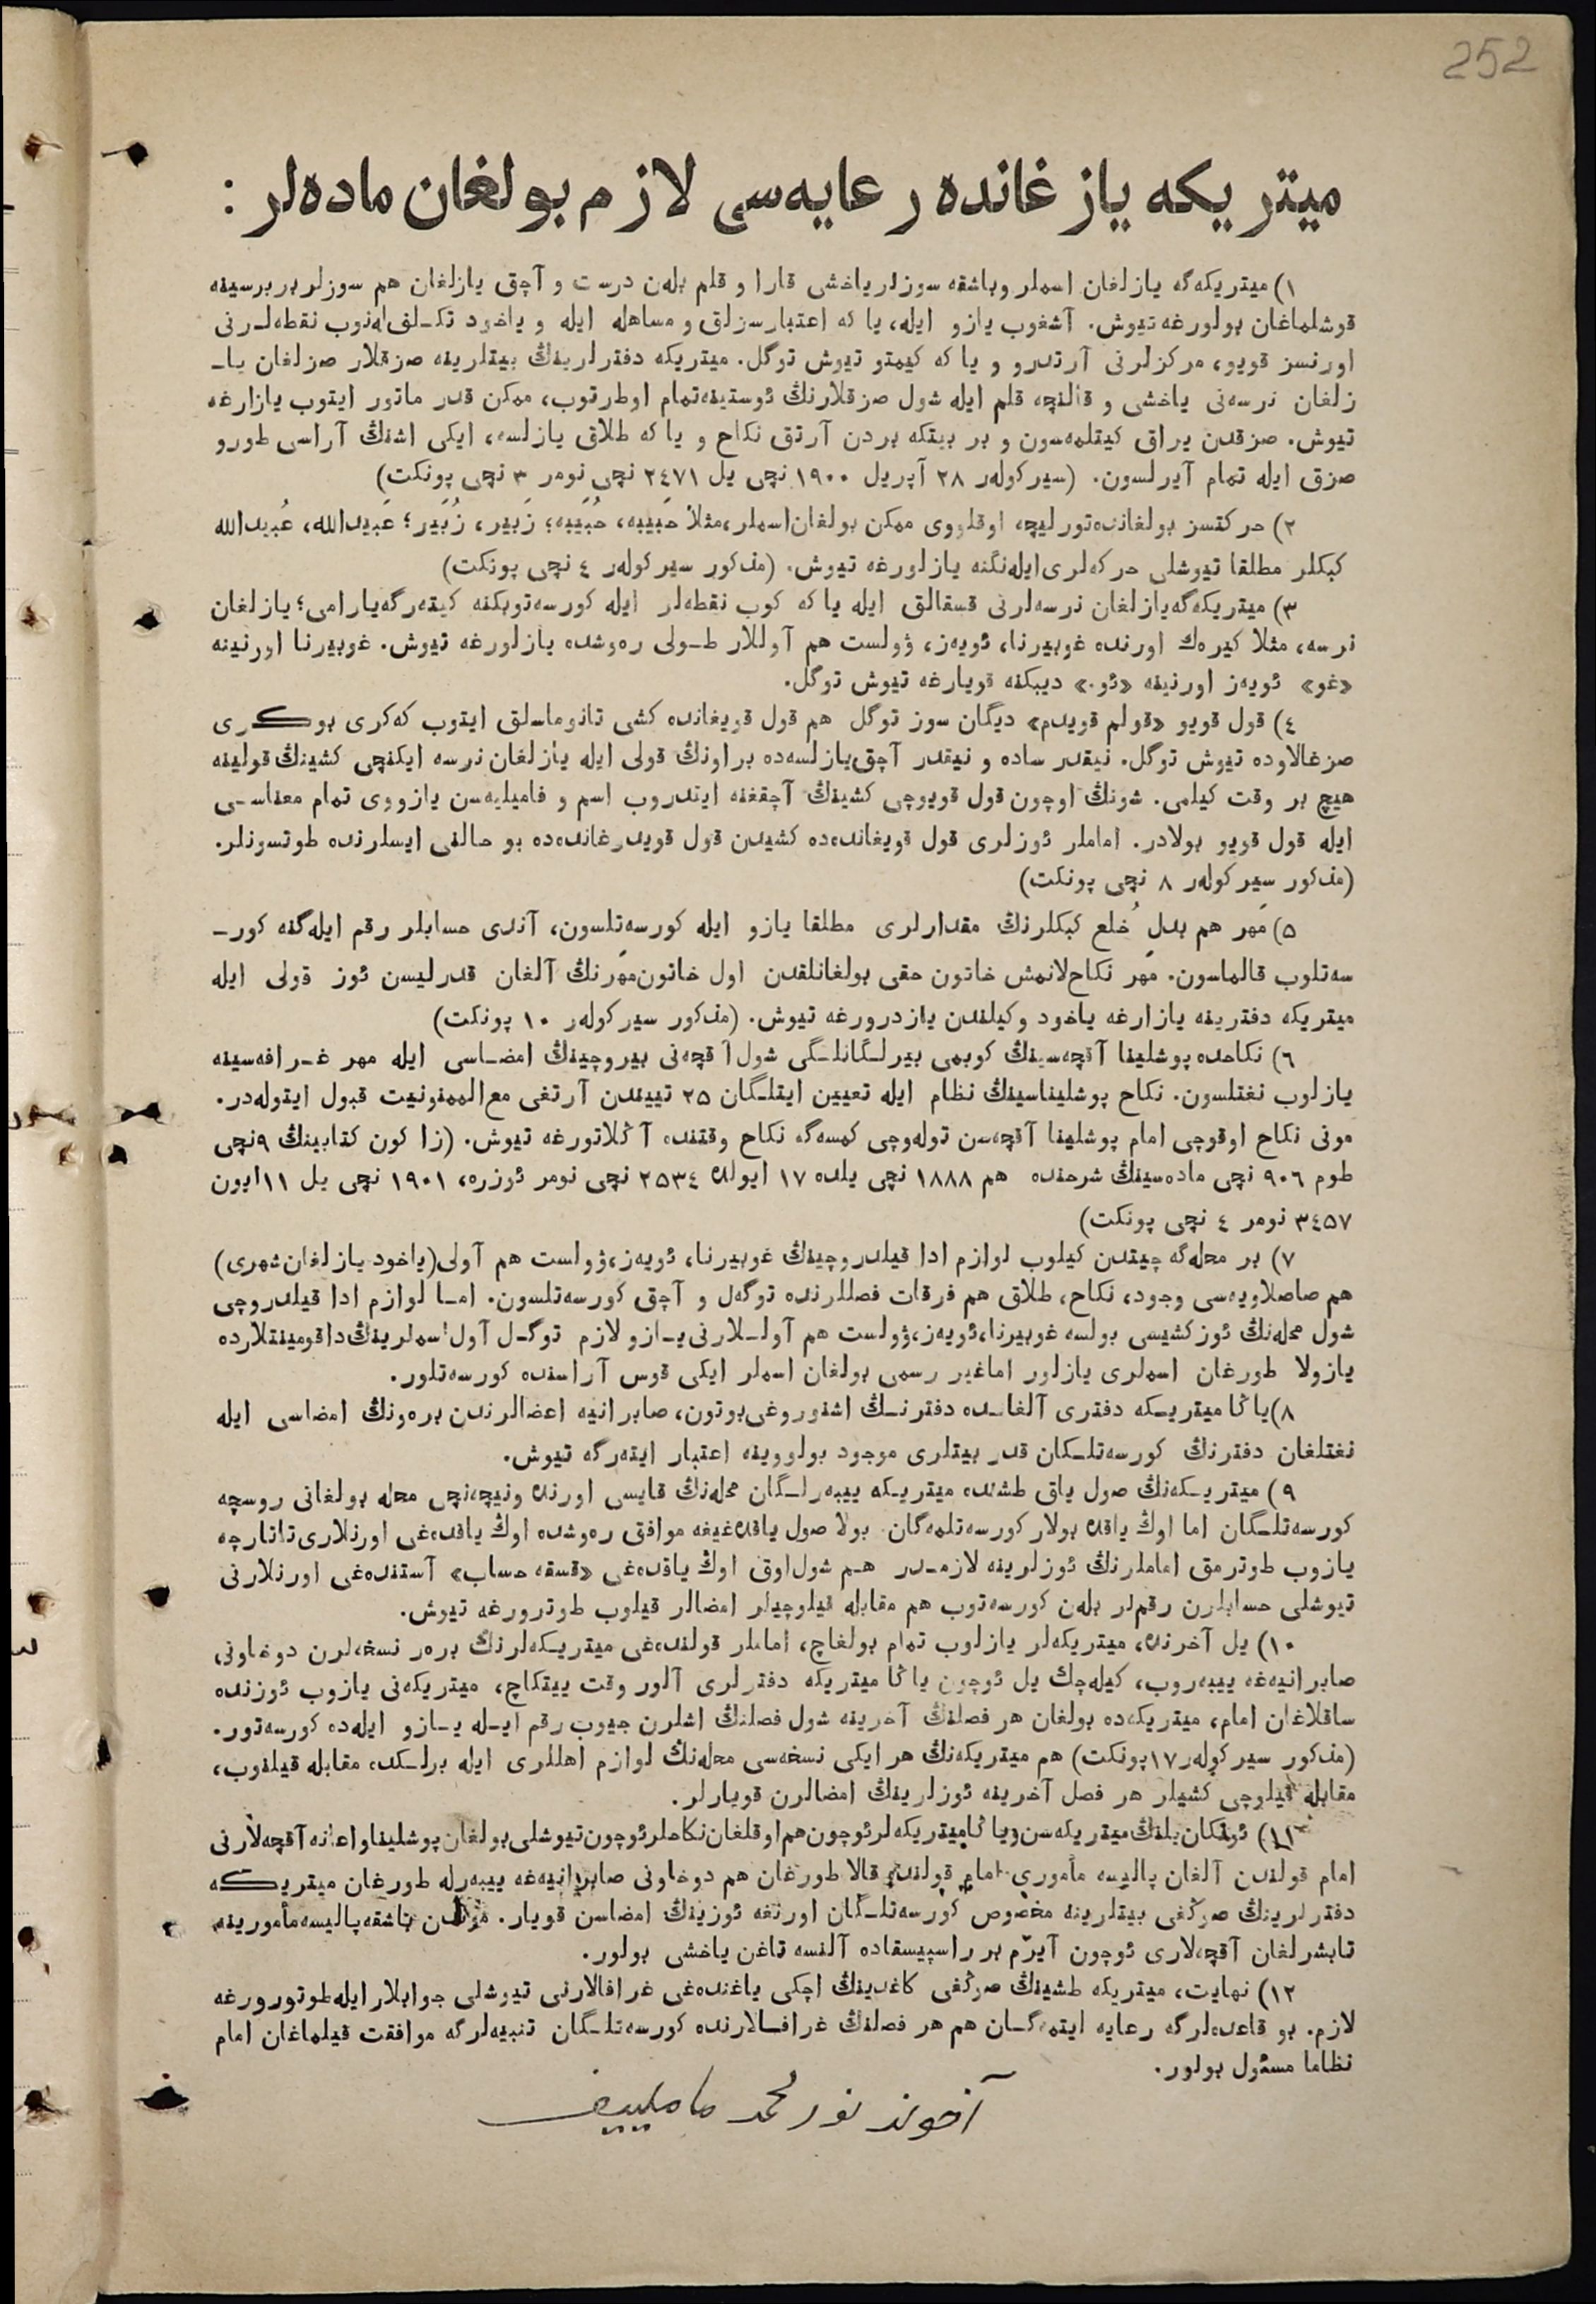 252
ميتريكه يازغانده رعايه‌سى لازم بولغان ماده‌لر :
١) ميتريكه‌گه يازلغان اسملر وباشقه سوزلر ياخشى قارا و قلم بله‌ن درست و آچق يازلغان هم سوزلر بربرسينه
قوشلماغان بولورغه تيوش. آشغوب يازو ايله، يا كه اعتبارسزلق و مساهله ايله و ياخود تكـلف‌له‌نوب نقطه‌لـرنى
اورنسز قويو، مركزلرنى آرتدرو و يا كه كيمتو تيوش توگل. ميتريكه دفترلرينڭ بيتلرينه صزقلار صزلغان ياـ
زلغان نرسه‌نى ياخشى و قالنچه قلم ايله شول صزقلارنڭ ئوستينه‌تمام اوطرتوب، ممكن قدر ماتور ايتوب يازارغه
تيوش. صزقدن يراق كيتلمه‌سون و بر بيتكه بردن آرتق نكاح و يا كه طلاق يازلسه، ايكى اشنڭ آراسى طورو
صزق ايله تمام آيرلسون. (سيركولەر ٢٨ آپريل ١٩٠٠ نچى يل ٢٤٧١ نچى نومر ٣ نچى پونكت)
٢) حركتسز بولغانده‌تورليچه اوقلووى ممكن بولغان‌اسملر،مثلاً حَبيبه، حُبَيبه؛ زَبير، زُبَير؛ عَبيدالله، عُبيدالله
كبكلر مطلقا تيوشلى حركه‌لرى‌ايله‌نگنه يازلورغه تيوش. (مذكور سيركولەر ٤ نچى پونكت)
٣) ميتريكه‌گه‌يازلغان نرسه‌لرنى قسقالق ايله يا كه كوب نقطه‌لر ايله كورسه‌توبكنه كيته‌رگه‌يارامى؛ يازلغان
نرسه، مثلا كيره‌ك اورنده غوبيرنا، ئويه‌ز، ۋولست هم آوللار طـولى ره‌وشده يازلورغه تيوش. غوبيرنا اورنينه
«غو» ئويه‌ز اورنينه «ئو.» ديبكنه قويارغه تيوش توگل.
٤) قول قويو «قولم قويدم» ديگان سوز توگل هم قول قويغانده كشى تانوماسلق ايتوب كه‌كرى بوكـرى
صزغالاوده تيوش توگل. نيقدر ساده و نيقدر آچق‌يازلسه‌ده براونڭ قولى ايله يازلغان نرسه ايكنچى كشينڭ قولينه
هيچ بر وقت كيلمى. شونڭ اوچون قول قويوچى كشينڭ آچقغنه ايتدروب اسم و فاميليه‌سن يازووى تمام معناسـى
ايله قول قويو بولادر. اماملر ئوزلرى قول قويغانده‌ده كشيدن قول قويدرغانده‌ده بو حالنى ايسلرنده طوتسونلر.
(مذكور سيركولەر ٨ نچى پونكت)
٥) مَهر هم بدلِ خُلع كبكلرنڭ مقدارلرى مطلقا يازو ايله كورسه‌تلسون، آندى حسابلر رقم ايله‌گنه كورـ
سه‌تلوب قالماسون. مَهر نكاح‌لانمش خاتون حقى بولغانلقدن اول خاتون‌مَهرنڭ آلغان قدرليسن ئوز قولى ايله
ميتريكه دفترينه يازارغه ياخود وكيلندن يازدرورغه تيوش. (مذكور سيركولەر ١٠ پونكت)
٦) نكاحده پوشلينا آقچه‌سينڭ كوبمى بيرلـگانلـگى شول آقچه‌نى بيروچينڭ امضـاسى ايله مهر غـرافه‌سينه
يازلوب نغتلسون. نكاح پوشليناسينڭ نظام ايله تعيين ايتلـگان ٢٥ تييندن آرتغى مع‌الممنونيت قبول ايتوله‌در.
مونى نكاح اوقوچى امام پوشلينا آقچه‌سن تولەوچى كمسه‌گه نكاح وقتنده آڭلاتورغه تيوش. (زاكون كتابينڭ ٩نچى
طوم ٩٠٦ نچى ماده‌سينڭ شرحنده هم ١٨٨٨ نچى يلده ١٧ ايولده ٢٥٣٤ نچى نومر ئوزره، ١٩٠١ نچى يل ١١ايون
٣٤٥٧ نومر ٤ نچى پونكت)
٧) بر محله‌گه چيتدن كيلوب لوازم ادا قيلدروچينڭ غوبيرنا، ئويه‌ز،ۋولست هم آولى(ياخود يازلغان‌شهرى)
هم صاصلاويه‌سى وجود، نكاح، طلاق هم فرقات فصللرنده توگه‌ل و آچق كورسه‌تلسون. امـا لوازم ادا قيلدروچى
شول محله‌نڭ ئوزكشيسى بولسه غوبيرنا،ئويه‌ز،ۋولست هم آولـلارنى‌يـازو لازم توگـل آول‌اسملرينڭ‌داقومينتلارده
يازولا طورغان اسملرى يازلور اماغير رسمى بولغان اسملر ايكى قوس آراسنده كورسه‌تلور.
٨)ياڭا ميتريـكه دفترى آلغانـده دفترنـڭ اشنوروغى‌بوتون، صابرانيه اعضالرندن بره‌ونڭ امضاسى ايله
نغتلغان دفترنڭ كورسه‌تلـكان قدر بيتلرى موجود بولووينه اعتبار ايته‌رگه تيوش.
٩) ميتريـكه‌نڭ صول ياق طشنده ميتريـكه ييبه‌رلـگان محله‌نڭ قايسى اورنده ونيچه‌نچى محله بولغانى روسچه
كورسه‌تلـگان اما اوڭ ياقده بولار كورسه‌تلمه‌گان. بولا صول ياقده‌غيغه موافق ره‌وشده اوڭ ياقده‌غى اورنلارى‌تاتارچه
يازوب طوترمق اماملرنڭ ئوزلرينه لازمـدر هـم شول‌اوق اوڭ ياقده‌غى «قسقه حساب» آستنده‌غى اورنلارنى
تيوشلى حسابلرن رقملر بله‌ن كورسه‌توب هم مقابله قيلوچيلر امضالر قيلوب طوترورغه تيوش.
١٠) يل آخرنده، ميتريكه‌لر يازلوب تمام بولغاچ، اماملر قولنده‌غى ميتريـكه‌لرنڭ بره‌ر نسخه‌لرن دوخاونى
صابرانيه‌غه ييبه‌روب، كيله‌چك يل ئوچون ياڭا ميتريكه دفترلرى آلور وقت ييتكاچ، ميتريكه‌نى يازوب ئوزنده
ساقلاغان امام، ميتريكه‌ده بولغان هر فصلنڭ آخرينه شول فصلنڭ اشلرن جيوب رقم ايـله يـازو ايله‌ده كورسه‌تور.
(مذكور سيركولەر ١٧پونكت) هم ميتريكه‌نڭ هر ايكى نسخه‌سى محله‌نڭ لوازم اهللرى ايله برلـكده مقابله قيلنوب،
مقابله قيلوچى كشيلر هر فصل آخرينه ئوزلرينڭ امضالرن قويارلر.
١١) ئوتكان‌يلنڭ‌ميتريكه‌سن‌وياڭاميتريكه‌لرئوچون‌هم‌اوقلغان‌نكاحلرئوچون‌تيوشلى‌بولغان‌پوشليناواعانه‌آقچه‌لارنى
امام قولندن آلغان پاليسه مأمورى امام قولنده قالا طورغان هم دوخاونى صابرانيه‌غه ييبه‌رله طورغان ميتريـكه
دفترلرينڭ صوڭغى بيتلرينه مخصوص كورسه‌تلـگان اورنغه ئوزينڭ امضاسن قويار. موندن باشقه‌پاليسه‌مأمورينه
تابشرلغان آقچه‌لارى ئوچون آيرم بر راسپيسقاده آلنسه تاغن ياخشى بولور.
١٢) نهايت، ميتريكه طشينڭ صوڭغى كاغدينڭ اچكى ياغنده‌غى غرافالارنى تيوشلى جوابلارايله‌طوتورورغه
لازم. بو قاعده‌لرگه رعايه ايتمه‌گـان هم هر فصلنڭ غرافـالارنده كورسه‌تلـگان تنبيه‌لرگه موافقت قيلماغان امام
نظاما مسئول بولور.
آخوند نورمحمد ماملييف